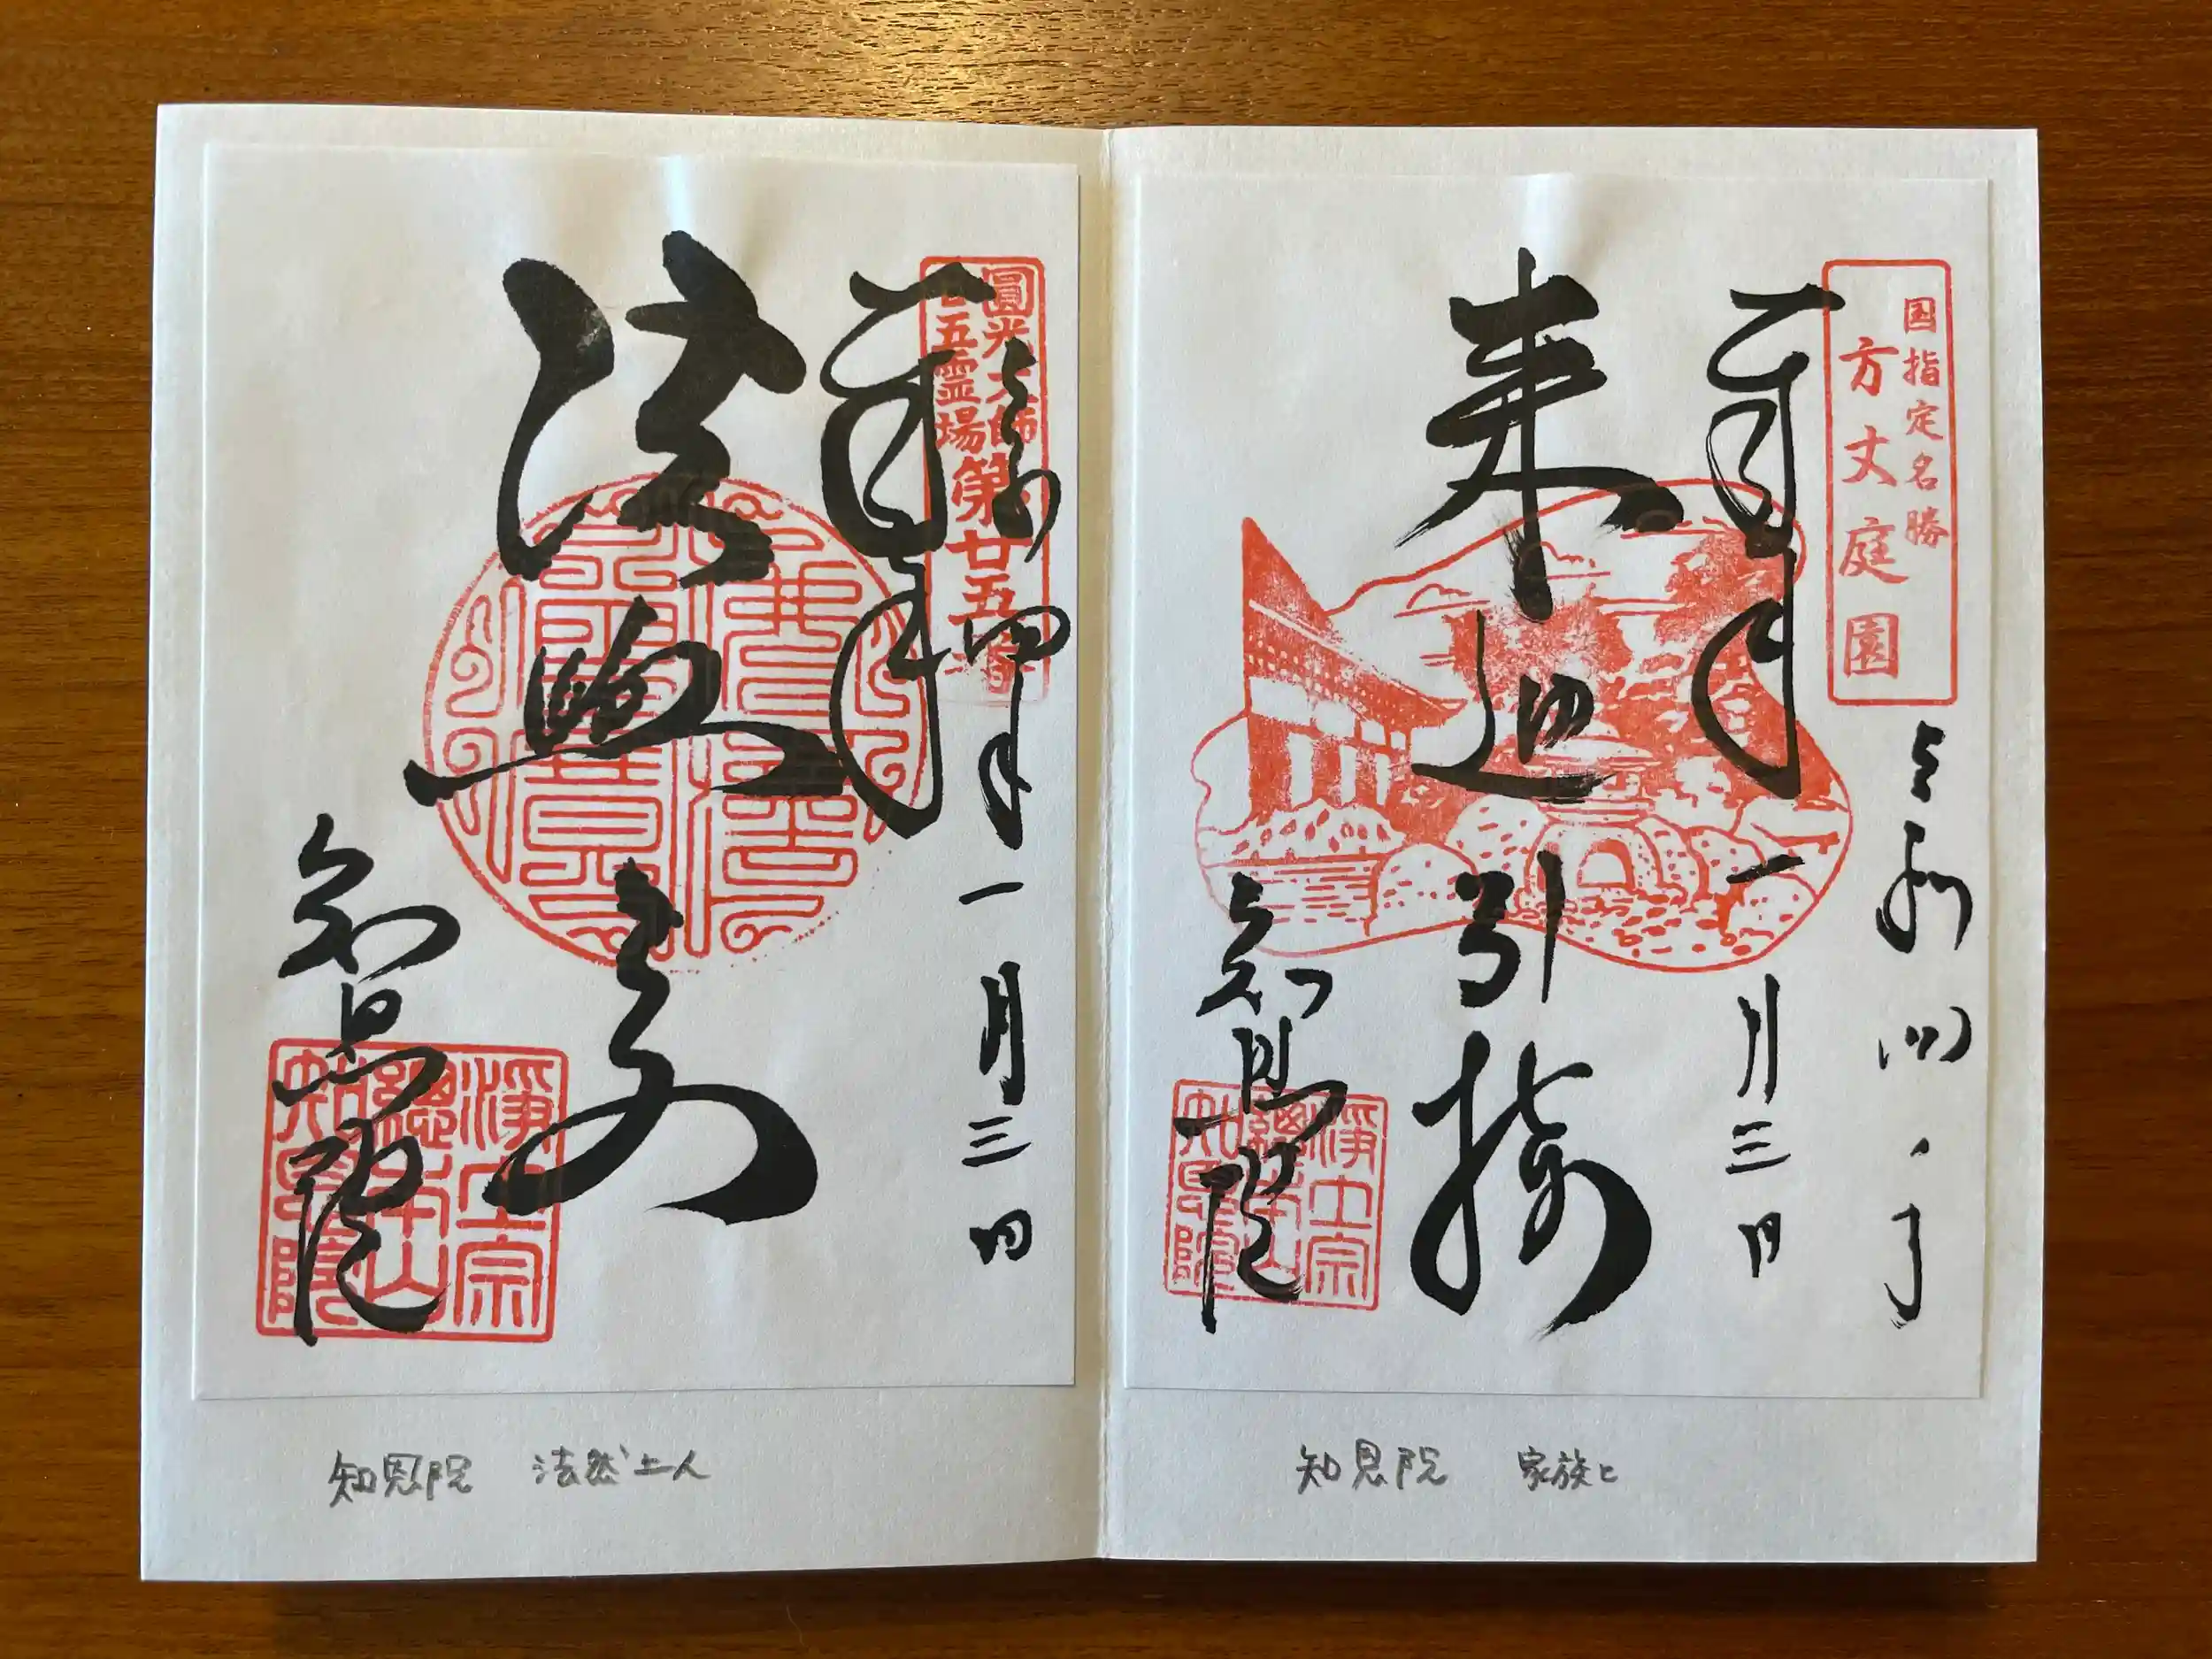 国指定名勝
方丈庭園
令和四年
一月三日
奉拝
来迎引接
知恩院
浄土宗
總本山
知恩院
圓光大師
廿五霊場
第廿五番
令和四年一月三日
奉拝
法然上人
知恩院
浄土宗
總本山
知恩院
知恩院 家族と
知恩院 法然上人